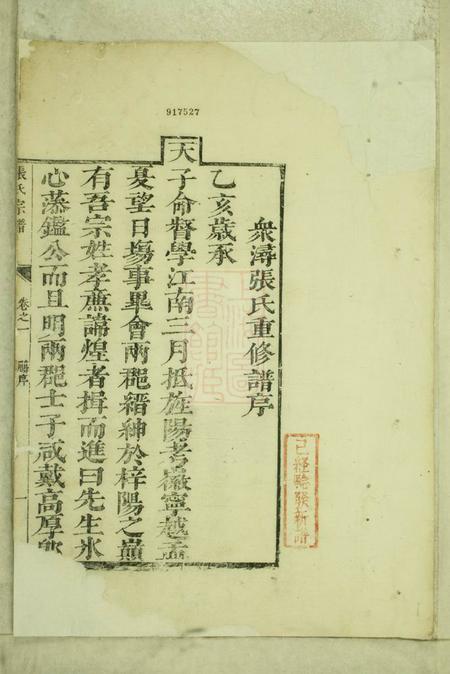 917527
衆潯張氏重修譜序
乙亥歲承
天子命督學江南三月抵旌陽考徽寧越孟
夏望日塲事畢會兩郡縉紳於梓陽之
有吾宗姓孝廉諱煌者揖而進曰先生氷
心藻鑑公而且明兩郡士子咸戴高厚
張氏宗譜
卷之一
序
一